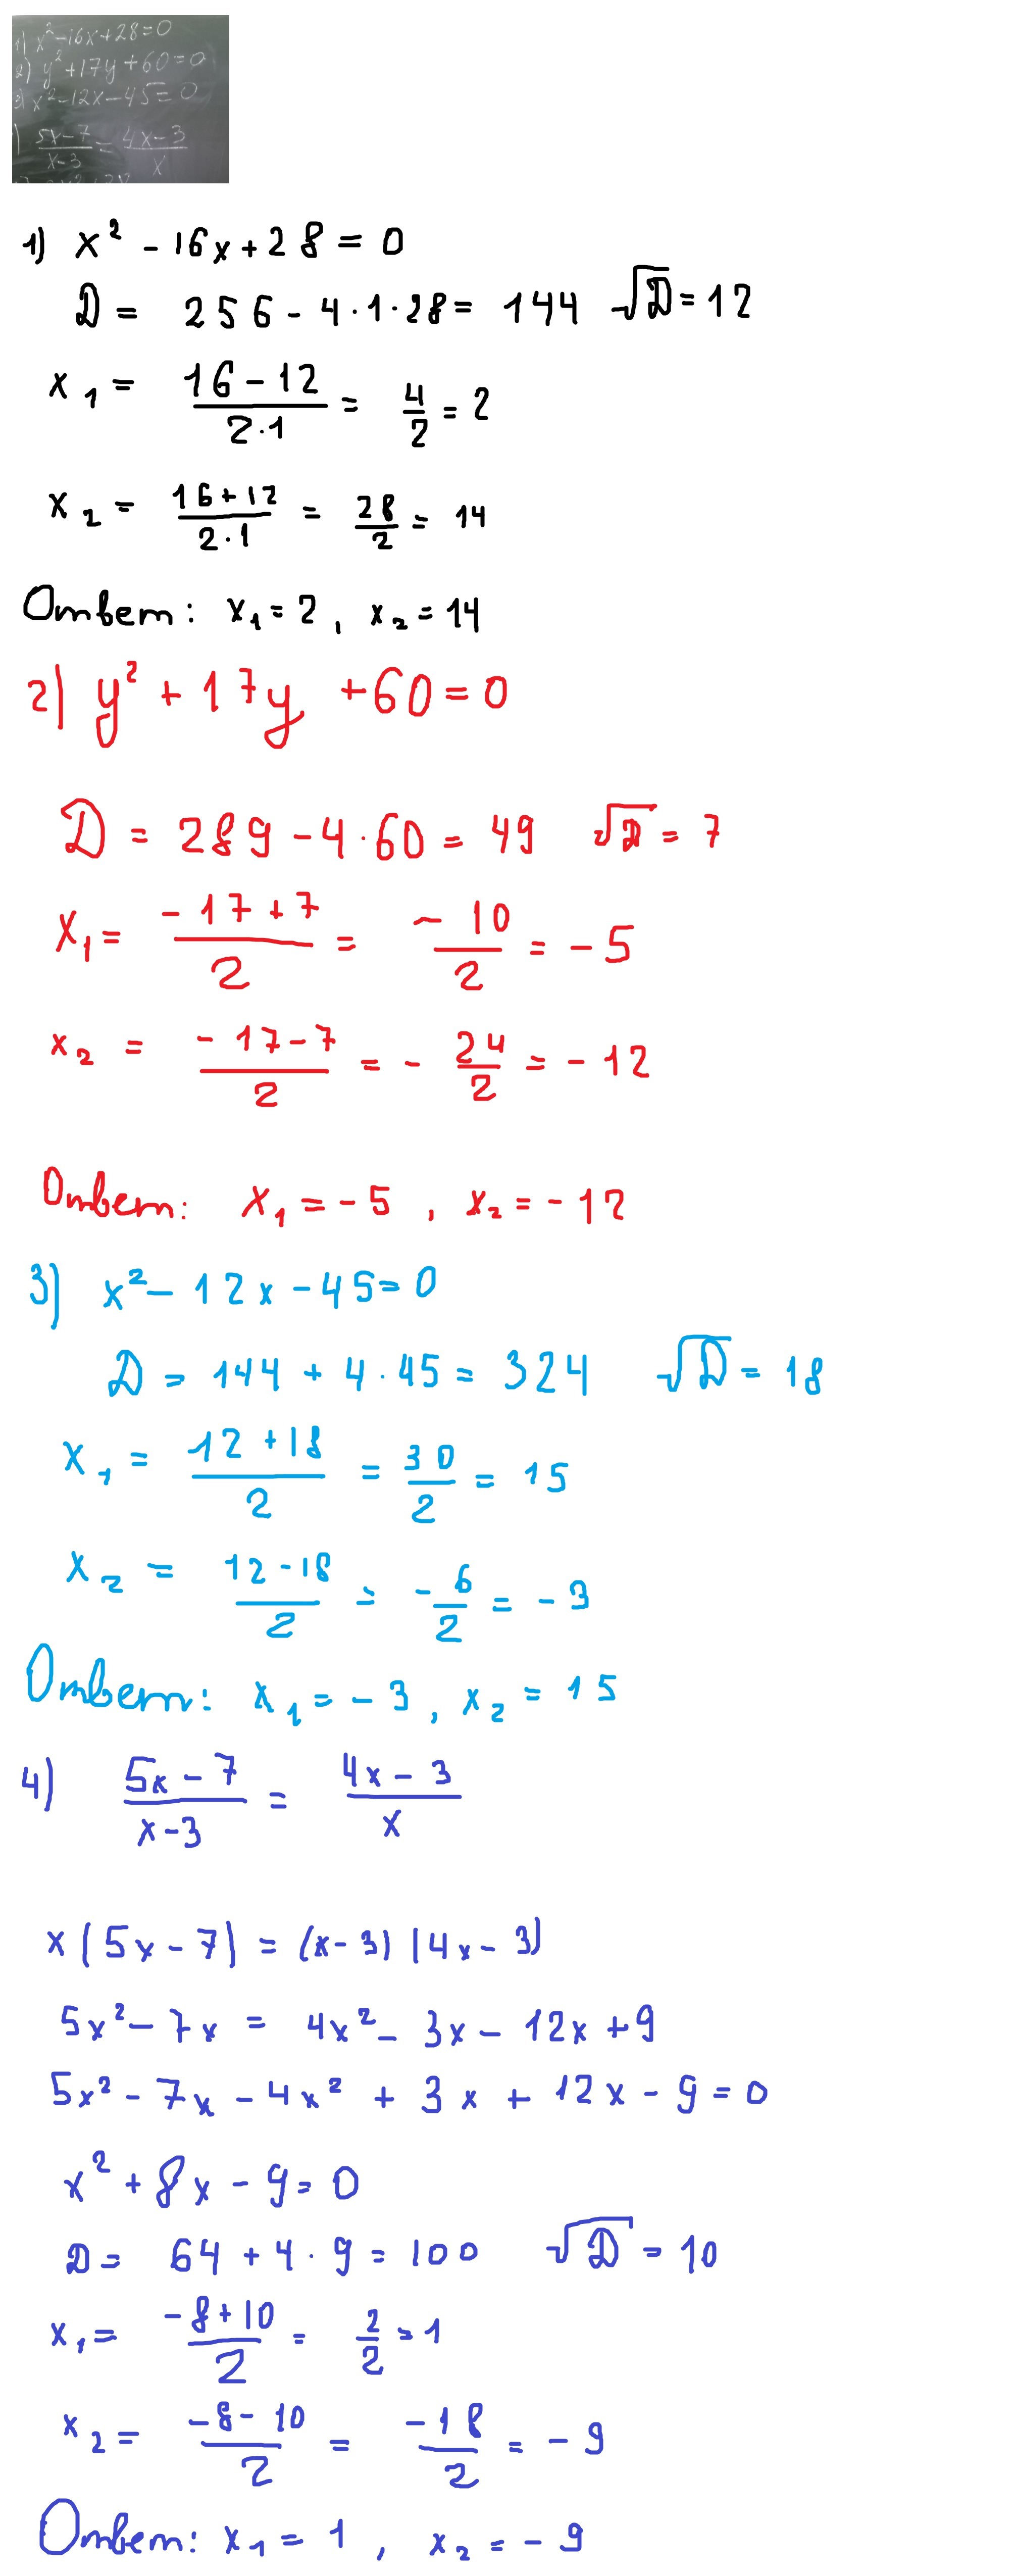 1) x²-16x+28=0
2) y²+17y+60=0
3) x²-12x-45=0
) (5x-7)/(x-3) = (4x-3)/x
1) x² - 16x + 28 = 0
D = 256 - 4·1·28 = 144 √D = 12
x₁ = (16-12)/(2·1) = 4/2 = 2
x₂ = (16+12)/(2·1) = 28/2 = 14
Ответ: x₁ = 2, x₂ = 14
2) y² + 17y + 60 = 0
D = 289 - 4·60 = 49 √D = 7
x₁ = (-17+7)/2 = -10/2 = -5
x₂ = (-17-7)/2 = -24/2 = -12
Ответ: x₁ = -5, x₂ = -12
3) x² - 12x - 45 = 0
D = 144 + 4·45 = 324 √D = 18
x₁ = (12+18)/2 = 30/2 = 15
x₂ = (12-18)/2 = -6/2 = -3
Ответ: x₁ = -3, x₂ = 15
4) (5x-7)/(x-3) = (4x-3)/x
x(5x-7) = (x-3)(4x-3)
5x² - 7x = 4x² - 3x - 12x + 9
5x² - 7x - 4x² + 3x + 12x - 9 = 0
x² + 8x - 9 = 0
D = 64 + 4·9 = 100 √D = 10
x₁ = (-8+10)/2 = 2/2 = 1
x₂ = (-8-10)/2 = -18/2 = -9
Ответ: x₁ = 1, x₂ = -9